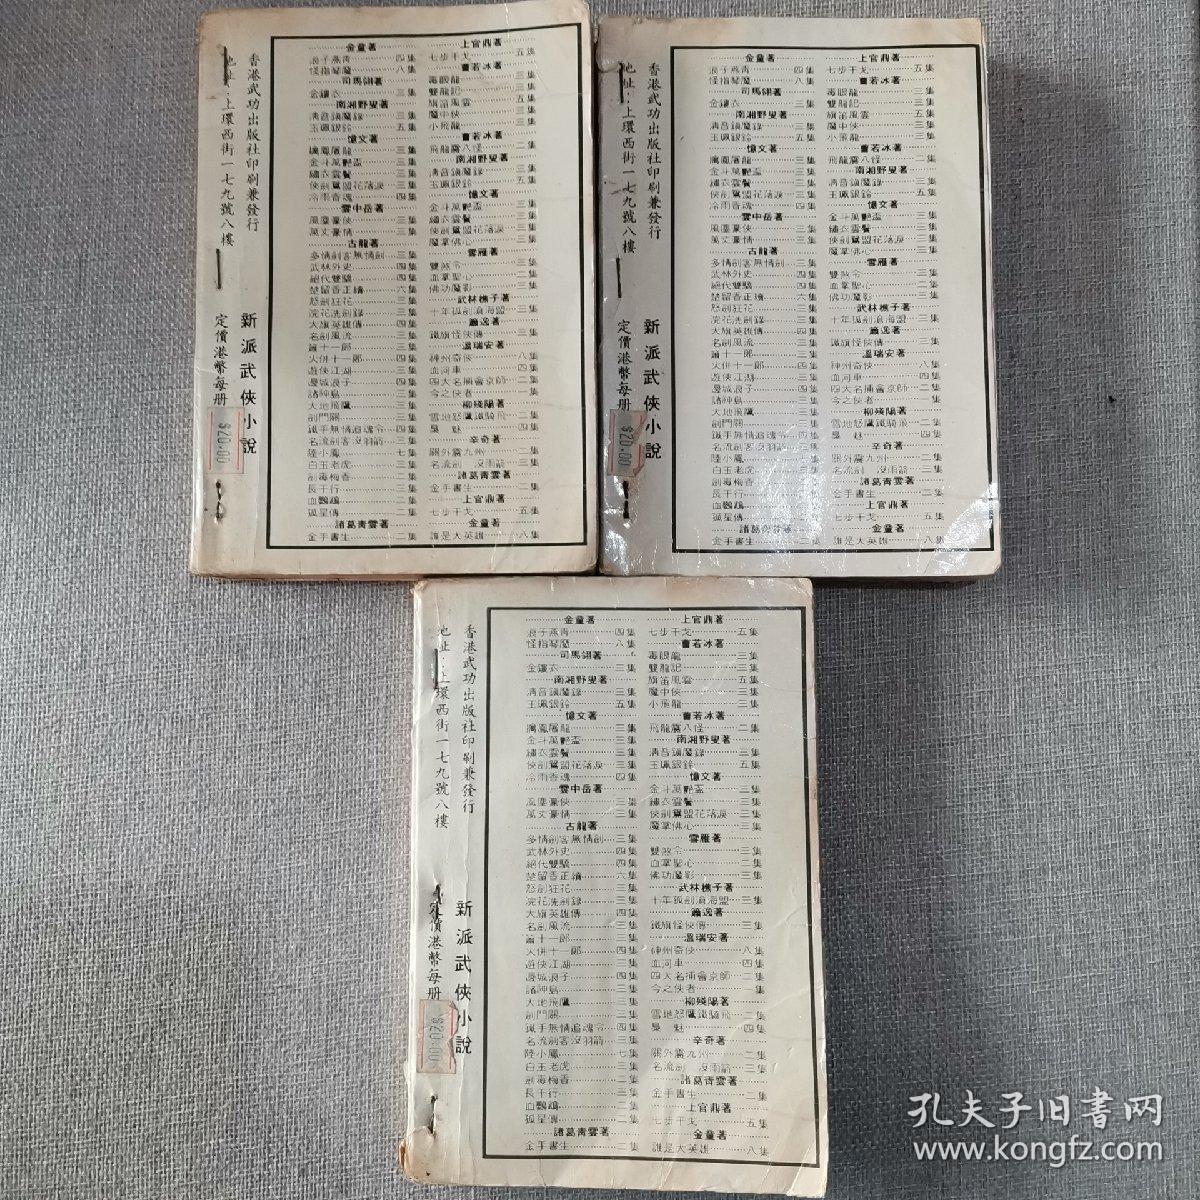 香港武功出版社印刷兼發行
地址：上環西街一七九號八樓
新派武俠小說
定價港幣每册
$20.00
金童著
浪子燕青 四集
怪指琴魔 八集
司馬翎著
金鏤衣 三集
南湘野叟著
清音鎮魔錄 三集
玉珮銀鈴 五集
憶文著
擒鳳屠龍 三集
金斗萬艷盃 三集
繡衣雲鬢 三集
俠劍鴛盟花落淚 三集
冷雨香魂 四集
雲中岳著
風塵豪俠 三集
萬丈豪情 三集
古龍著
多情劍客無情劍 三集
武林外史 四集
絕代雙驕 四集
楚留香正續 六集
怒劍狂花 三集
浣花洗劍錄 三集
大旗英雄傳 四集
名劍風流 三集
蕭十一郎 三集
火併十一郎 四集
遊俠江湖 三集
邊城浪子 四集
諸神島 三集
大地飛鷹 三集
劍門關 三集
鐵手無情追魂令 四集
名流劍客沒羽箭 三集
陸小鳳 七集
白玉老虎 三集
劍毒梅香 二集
長干行 三集
血鸚鵡 二集
孤星傳 二集
諸葛青雲著
金手書生 二集
上官鼎著
七步干戈 五集
曹若冰著
毒眼龍 三集
雙龍記 三集
旗笛風雲 五集
魔中俠 三集
小飛龍 三集
曹若冰著
飛龍震八怪 二集
南湘野叟著
清音鎮魔錄 三集
玉珮銀鈴 五集
憶文著
金斗萬艷盃 三集
繡衣雲鬢 三集
俠劍鴛盟花落淚 三集
魔掌佛心 三集
雲雁著
雙煞令 三集
血掌聖心 二集
佛功魔影 三集
武林樵子著
十年孤劍滄海盟 三集
蕭逸著
鐵旗怪俠傳 三集
溫瑞安著
神州奇俠 八集
血河車 四集
四大名捕會京師 二集
今之俠者 一集
柳殘陽著
雪地怒鷹鐵騎飛 二集
梟 魅 四集
辛奇著
關外震九州 二集
名流劍 沒雨箭 三集
諸葛青雲著
金手書生 二集
上官鼎著
七步干戈 五集
金童著
誰是大英雄 八集
孔夫子旧書网
www.kongfz.com